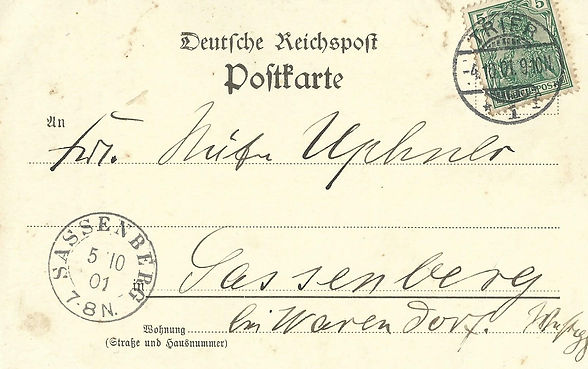 Deutsche Reichspost
Postkarte
5 5
TRIER
-4.10.01 9-10N.
* 1 I
REICHSPOST
An
Frl. Uphues
SASSENBERG
5 10
01
7-8N.
in
Sassenberg
bei Warendorf. Westf.
Wohnung
(Straße und Hausnummer)